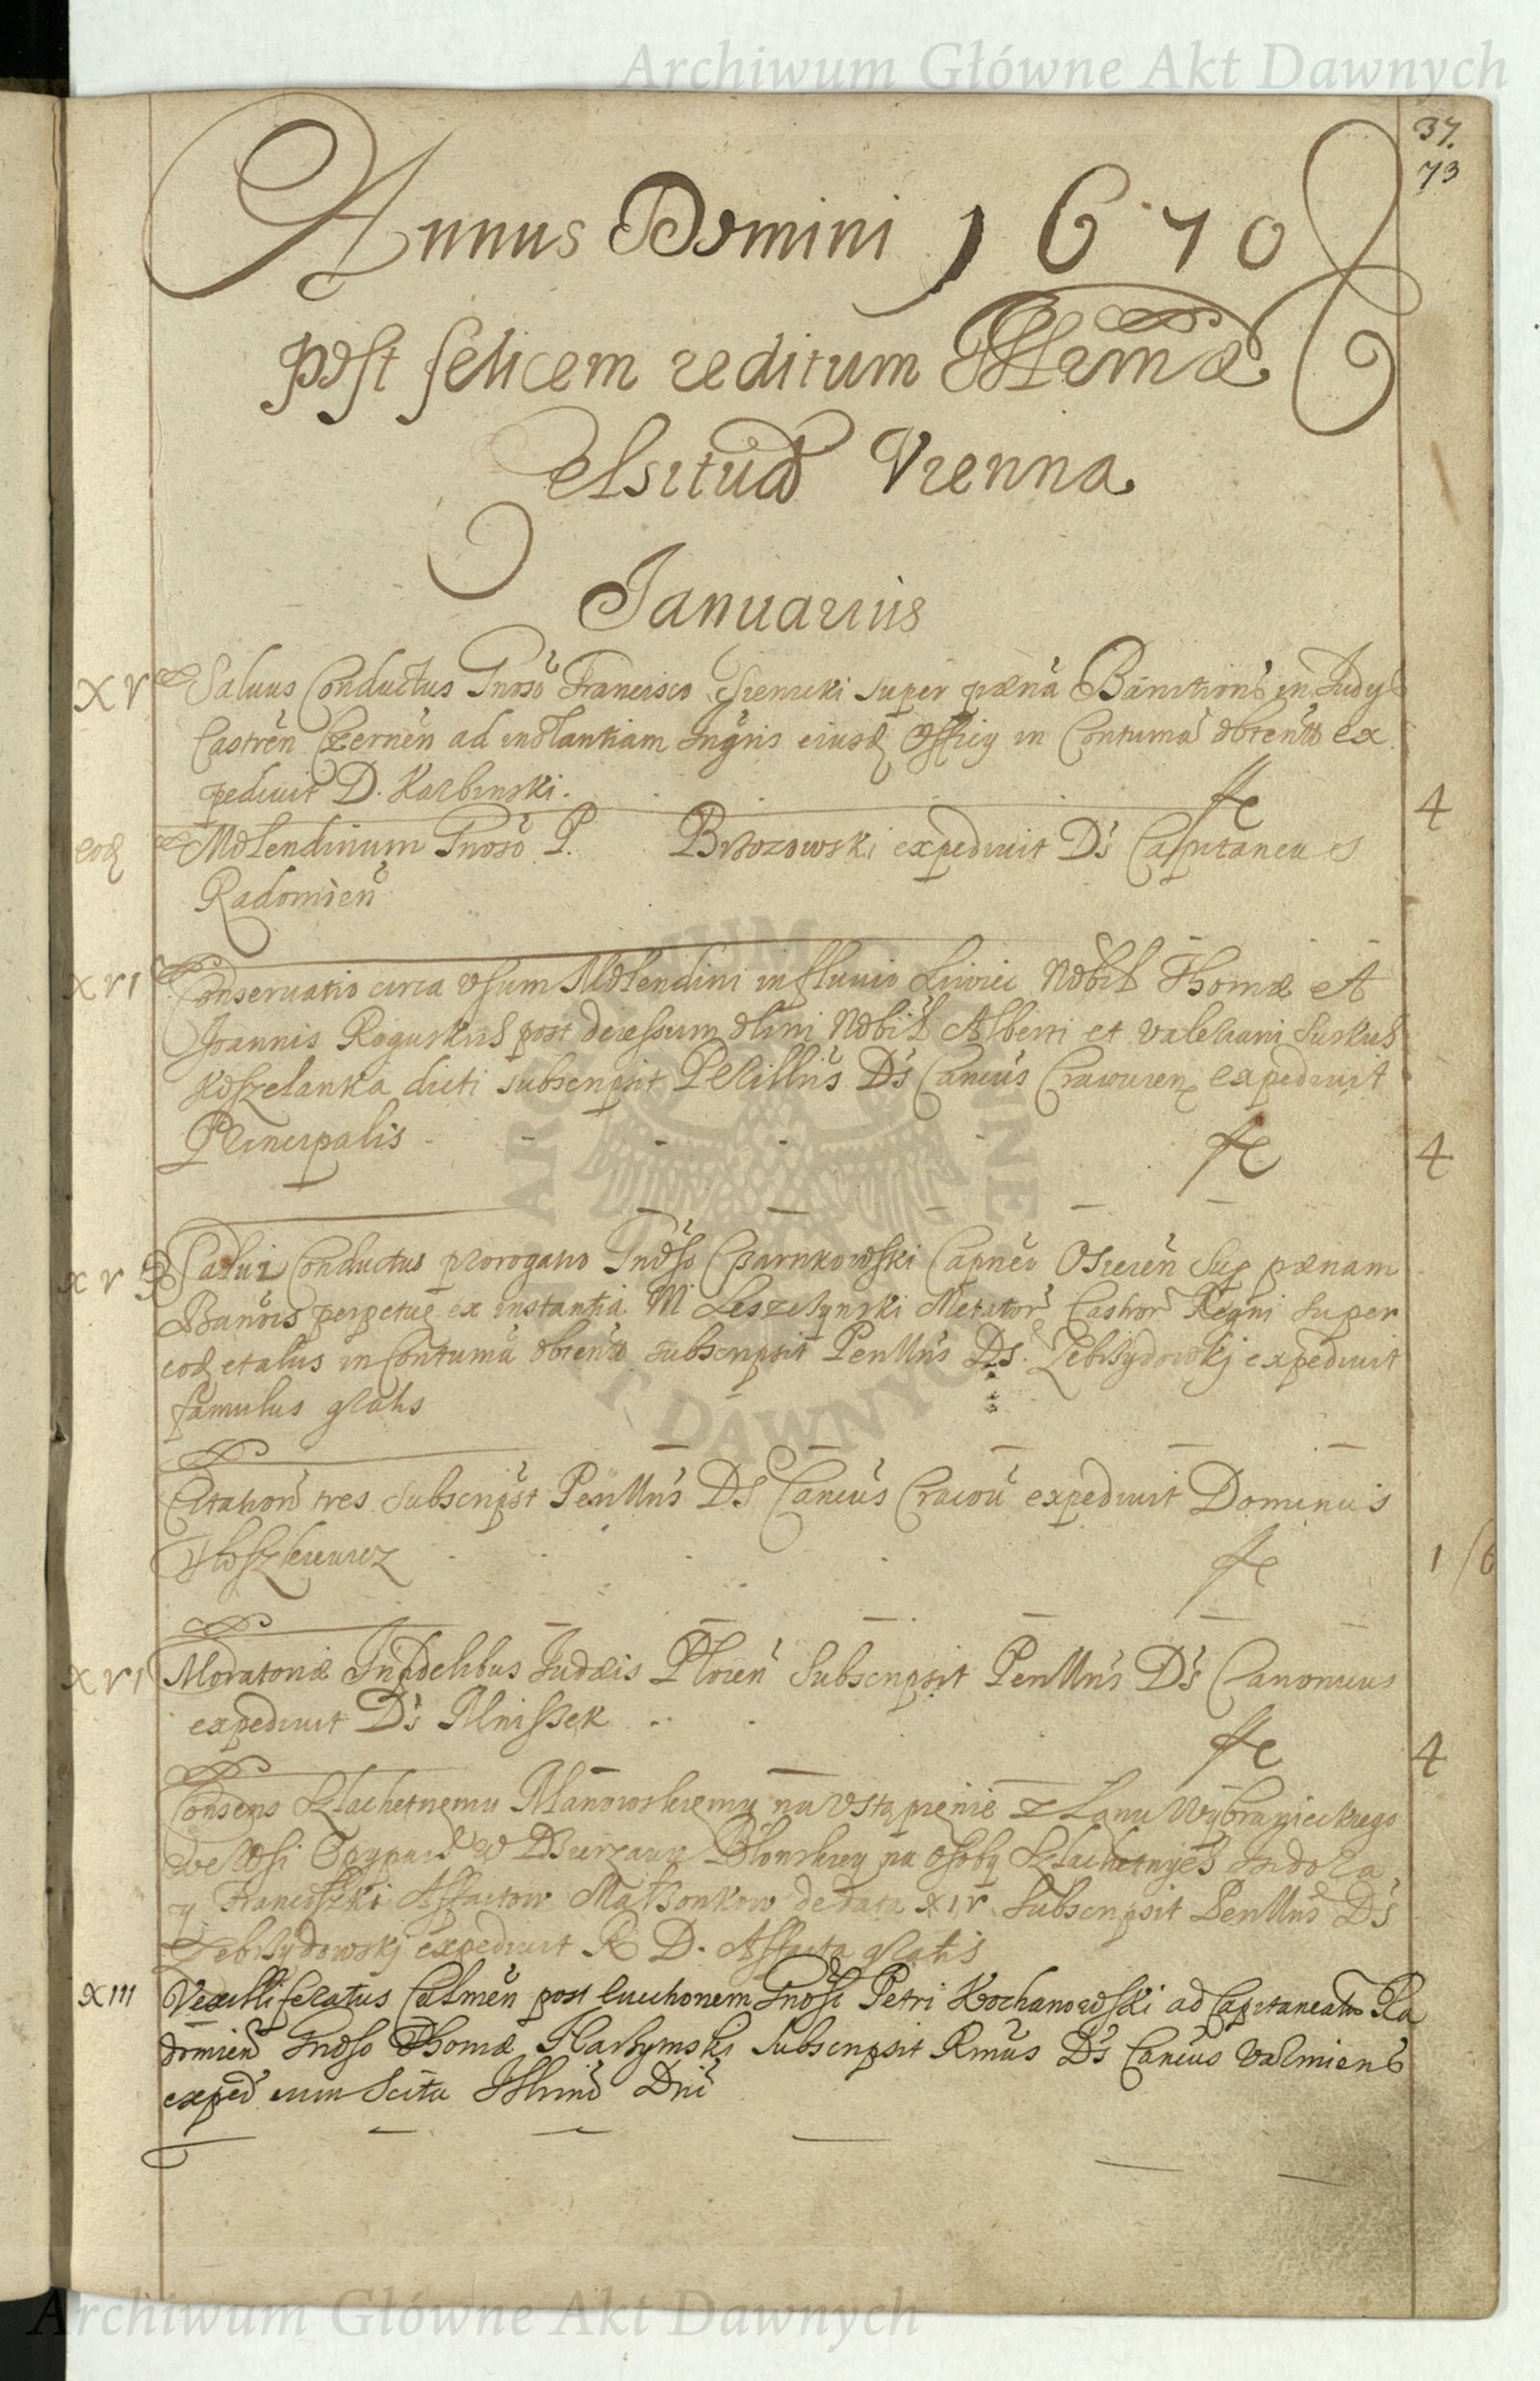 Archiwum Główne Akt Dawnych
37.
73
Annus Domini 1670
post felicem reditum Illrmæ
Celsitud Vienna
Januarius
XV Saluus Conductus Gnoso Francisco Sienicki super pæna Bannitionis in Judys
Castren Czernen ad instantiam Ingris eiusd Officy in Contuma obtento ex
pediuit D. Karbinski. fl 4
eod Molendinum Gnoso P. Brzozowski expediuit Ds Capitaneus
Radomien
XVI Conseruatio circa Vsum Molendini in fluuio Liwiec Nobil Thomæ et
Joannis Roguskis post decessum olim Nobil Alberti et Valeriani Suskis
Koszelanka dicti subscripsit Perillris Ds Cancus Cracouien expediuit
Principalis fl 4
XV Salui Conductus prorogatio Gnoso Czarnkowski Capneo Osiecen Sup pænam
Bannois perpetuę ex instantia M Leszczynski Metator Castror Regni super
eod etalus in Contuma obtento subscripsit Perillris Ds. Zebrzydowskj expediuit
famulus gratis
Citation tres Subscripst Perillris Ds Cancus Cracou expediuit Dominus
fl 1 /6
XVI Moratoriæ Infidelibus Judæis Plocen Subscripsit Perillris Ds Canonicus
expediuit Ds Mniszek fl 4
Consens Szlachetnemu Manowskiemu na Vstąpienie z Łanu Wybranieckiego
we Wsi w Dzierzawie Błonskiey na Osoby Szlachetnych
y Franciszki Małzonkow de data XIV Subscripsit Perillris Ds
Zebrzydowskj expediuit R D. gratis
XIII Vexilliferatus Culmen post euectionem Gnosi Petri Kochanowski ad Capitaneatum Ra
domien Gnoso Thomæ Subscripsit Rmus Ds Cancus Varmiens
exped cum Scitu Illrmi Dni
Archiwum Główne Akt Dawnych